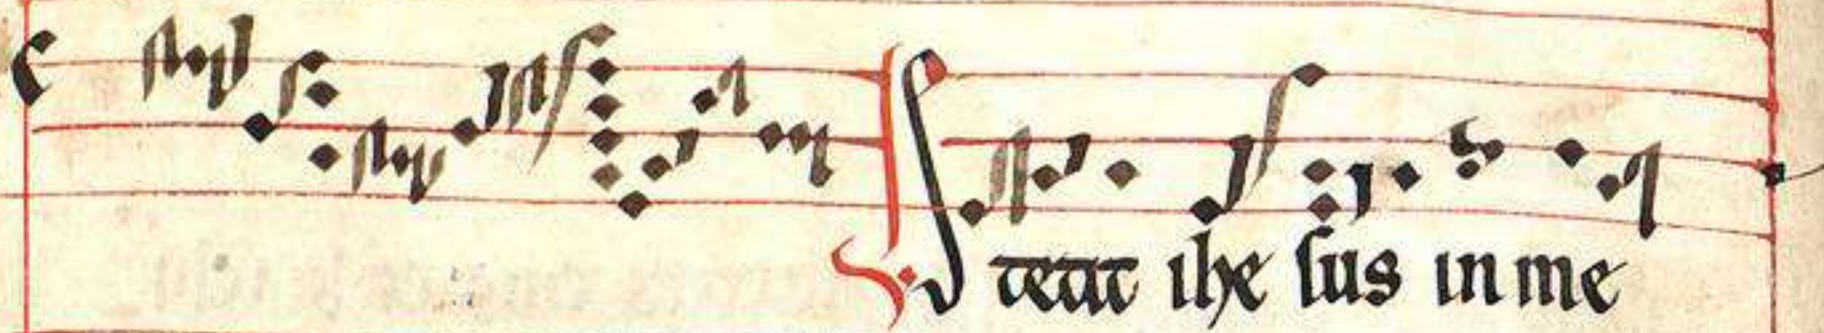 Stetit ihesus in me